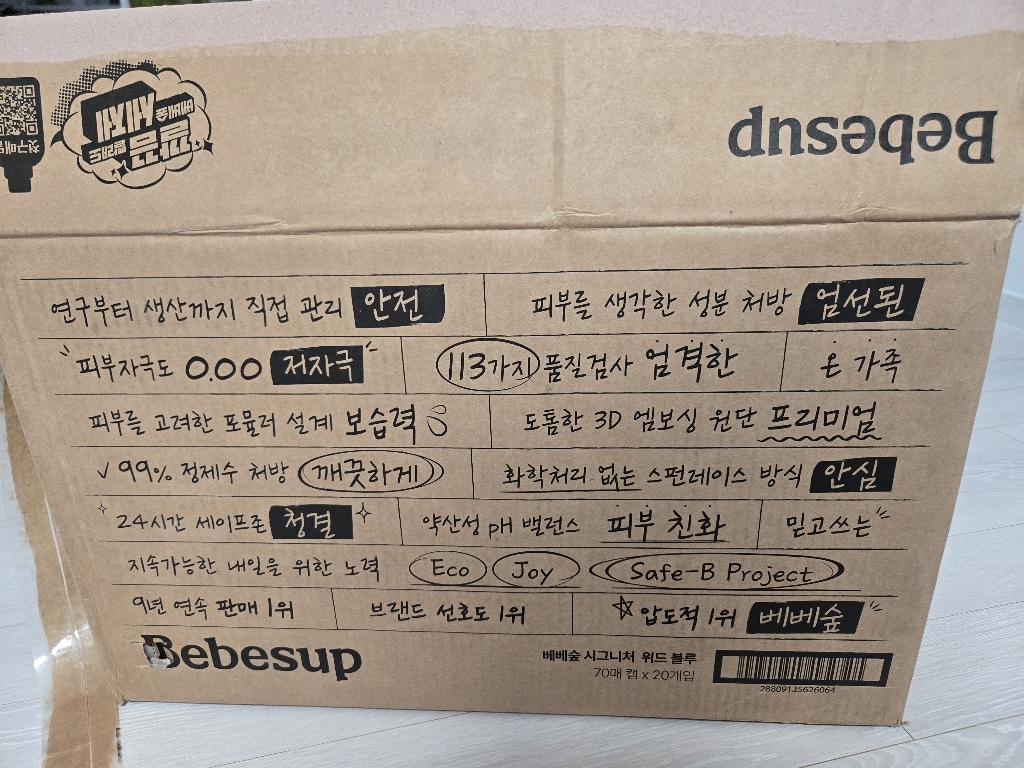 첫구매
베베숲
세제
깨끔
Bebesup
연구부터 생산까지 직접 관리 안전
피부를 생각한 성분 처방 엄선된
피부자극도 0.00 저자극
113가지 품질검사 엄격한
온 가족
피부를 고려한 포뮬러 설계 보습력
도톰한 3D 엠보싱 원단 프리미엄
99% 정제수 처방 깨끗하게
화학처리 없는 스펀레이스 방식 안심
24시간 세이프존 청결
약산성 pH 밸런스 피부 친화
믿고쓰는
지속가능한 내일을 위한 노력 Eco Joy Safe-B Project
9년 연속 판매 1위
브랜드 선호도 1위
압도적 1위 베베숲
Bebesup
베베숲 시그니처 위드 블루
70매 캡 x 20개입
28809135626064